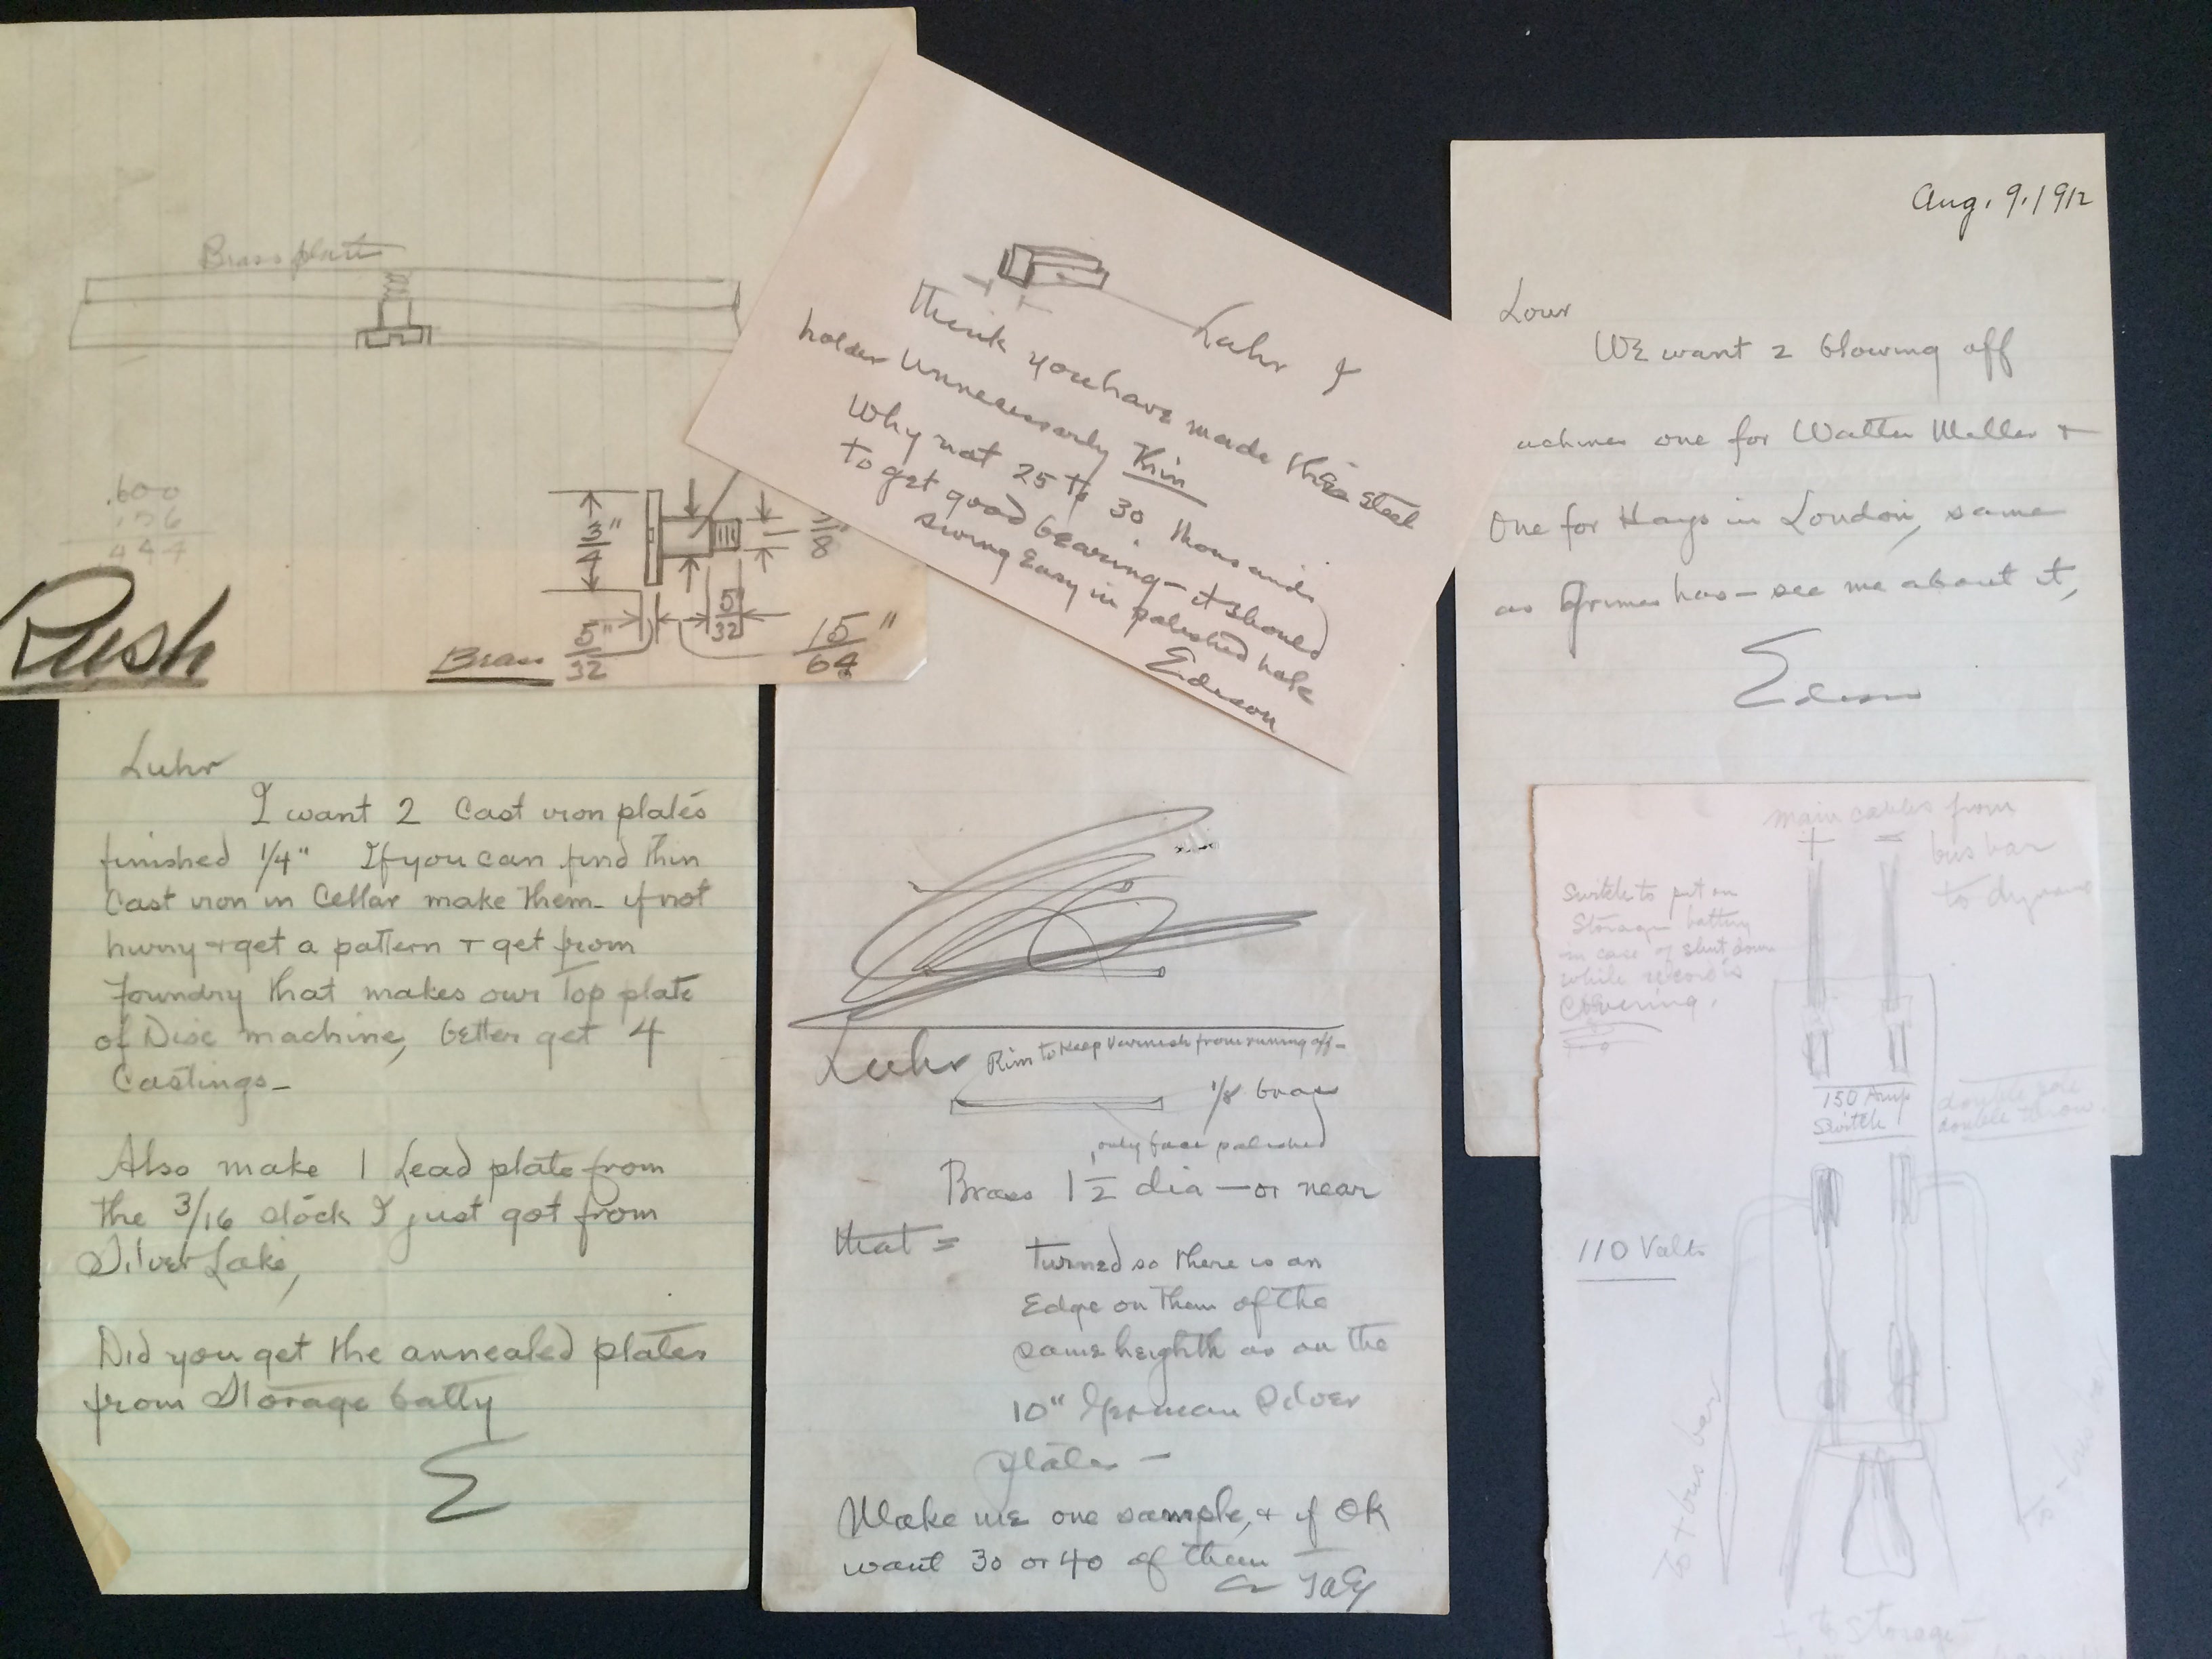 Brass plate
.600
Rush
3/4"
5"/32
5"/32
15"/64
/8"
Brass
Luhr &
Think you have made this steel
holder unnecessarly thin
Why not 25 to 30 thousands
to get good bearing – it should
swing Easy in polished hole
Edison
Aug. 9. 1912
WE want 2 blowing off
achines one for Walter Miller +
One for Hays in London, same
as Grimes has – see me about it,
Edison
Luhr
I want 2 Cast iron plates
finished 1/4" If you can find thin
Cast iron in Cellar make them – if not
hurry + get a pattern + get from
foundry that makes our Top plate
of Disc machine, better get 4
Castings –
Also make 1 Lead plate from
the 3/16 stock I just got from
Silver Lake,
Did you get the annealed plates
from Storage batty
E
Luhr
Rim to Keep Varnish from runing off –
1/8 brass
only face polished
Brass 1 1/2 dia – or near
that =
turned so there is an
Edge on them of the
same heighth as on the
10" German Silver
plates –
Make me one sample, + if OK
want 30 or 40 of them
TAE
main cables from
+ –
bus bar
to dynamo
Switch to put on
Storage battery
in case of shut down
while record is
Covering.
150 Amp
Switch
double pole
double throw.
110 Volts
To + bus bar
To – bus bar
+ to Storage